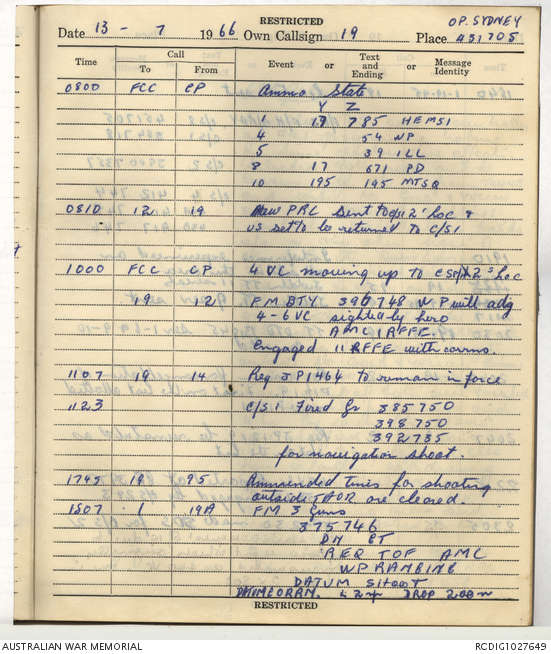 RESTRICTED
OP. SYDNEY
Date 13 - 7 1966 Own Callsign 19 Place 431705
Time Call Event or Text and Ending or Message Identity
To From
0800 FCC CP Ammo State
Y Z
1 17 785 HEMSI
4 54 WP
5 39 ILL
8 17 671 PD
10 195 195 MTSQ
0810 12 19 New PRC sent to 12' loc &
us set to be returned to C/S 1
1000 FCC CP 4 VC moving up to 2's loc
19 12 FM BTY 390748 WP with adg
4-6 VC sighted by hero
AMC 1 RFFE.
Engaged 11 RFFE with
1107 19 14 Reg JP1464 to remain in force
1123 C/S 1 Fired Gr 385750
398750
392735
for navigation shoot.
1745 19 95 Ammended times for shooting
outside TAOR are cleared.
1807 1 19A FM 3 Guns
375746
DN CT
REQ TOF AMC
WP RANGING
DATUM SHOOT
DROP 200m
RESTRICTED
AUSTRALIAN WAR MEMORIAL RCDIG1027649